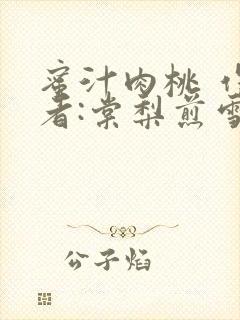 蜜汁肉桃 作
者:棠梨煎雪
公子焰